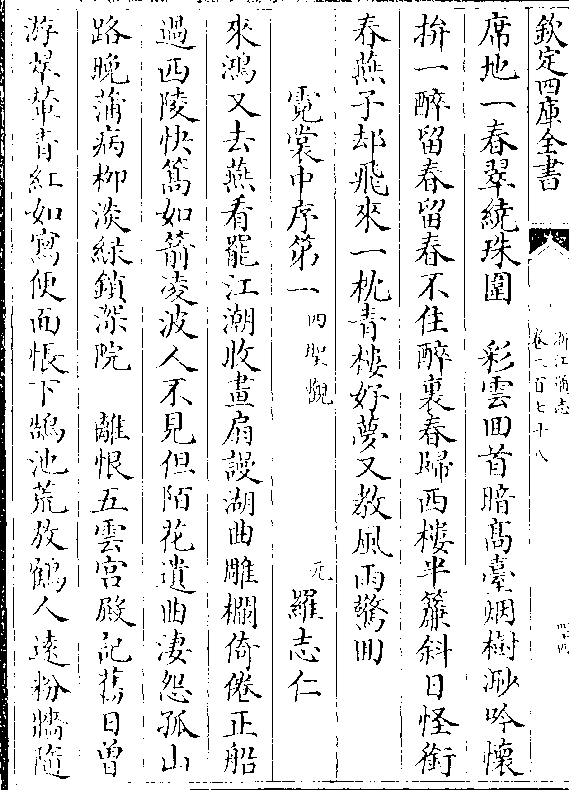 欽定四庫全書
浙江通志
卷二百七十八
席地一春翠繞珠圍　彩雲回首暗髙臺烟樹渺吟懷
拚一醉留春留春不住醉裏春歸西樓半簾斜日怪銜
春燕子却飛來一枕青樓好夢又教風雨驚回
霓裳中序第一 四聖觀　元 羅志仁
來鴻又去燕看罷江潮收畫扇謾湖曲雕欄倚倦正船
過西陵快篙如箭凌波人不見但陌花遺曲凄怨孤山
路晚蒲病柳淡綠鎖深院　離恨五雲宮殿記舊日曽
游翠輦青紅如寫便面悵下鵠池荒放鶴人逺粉牆隨